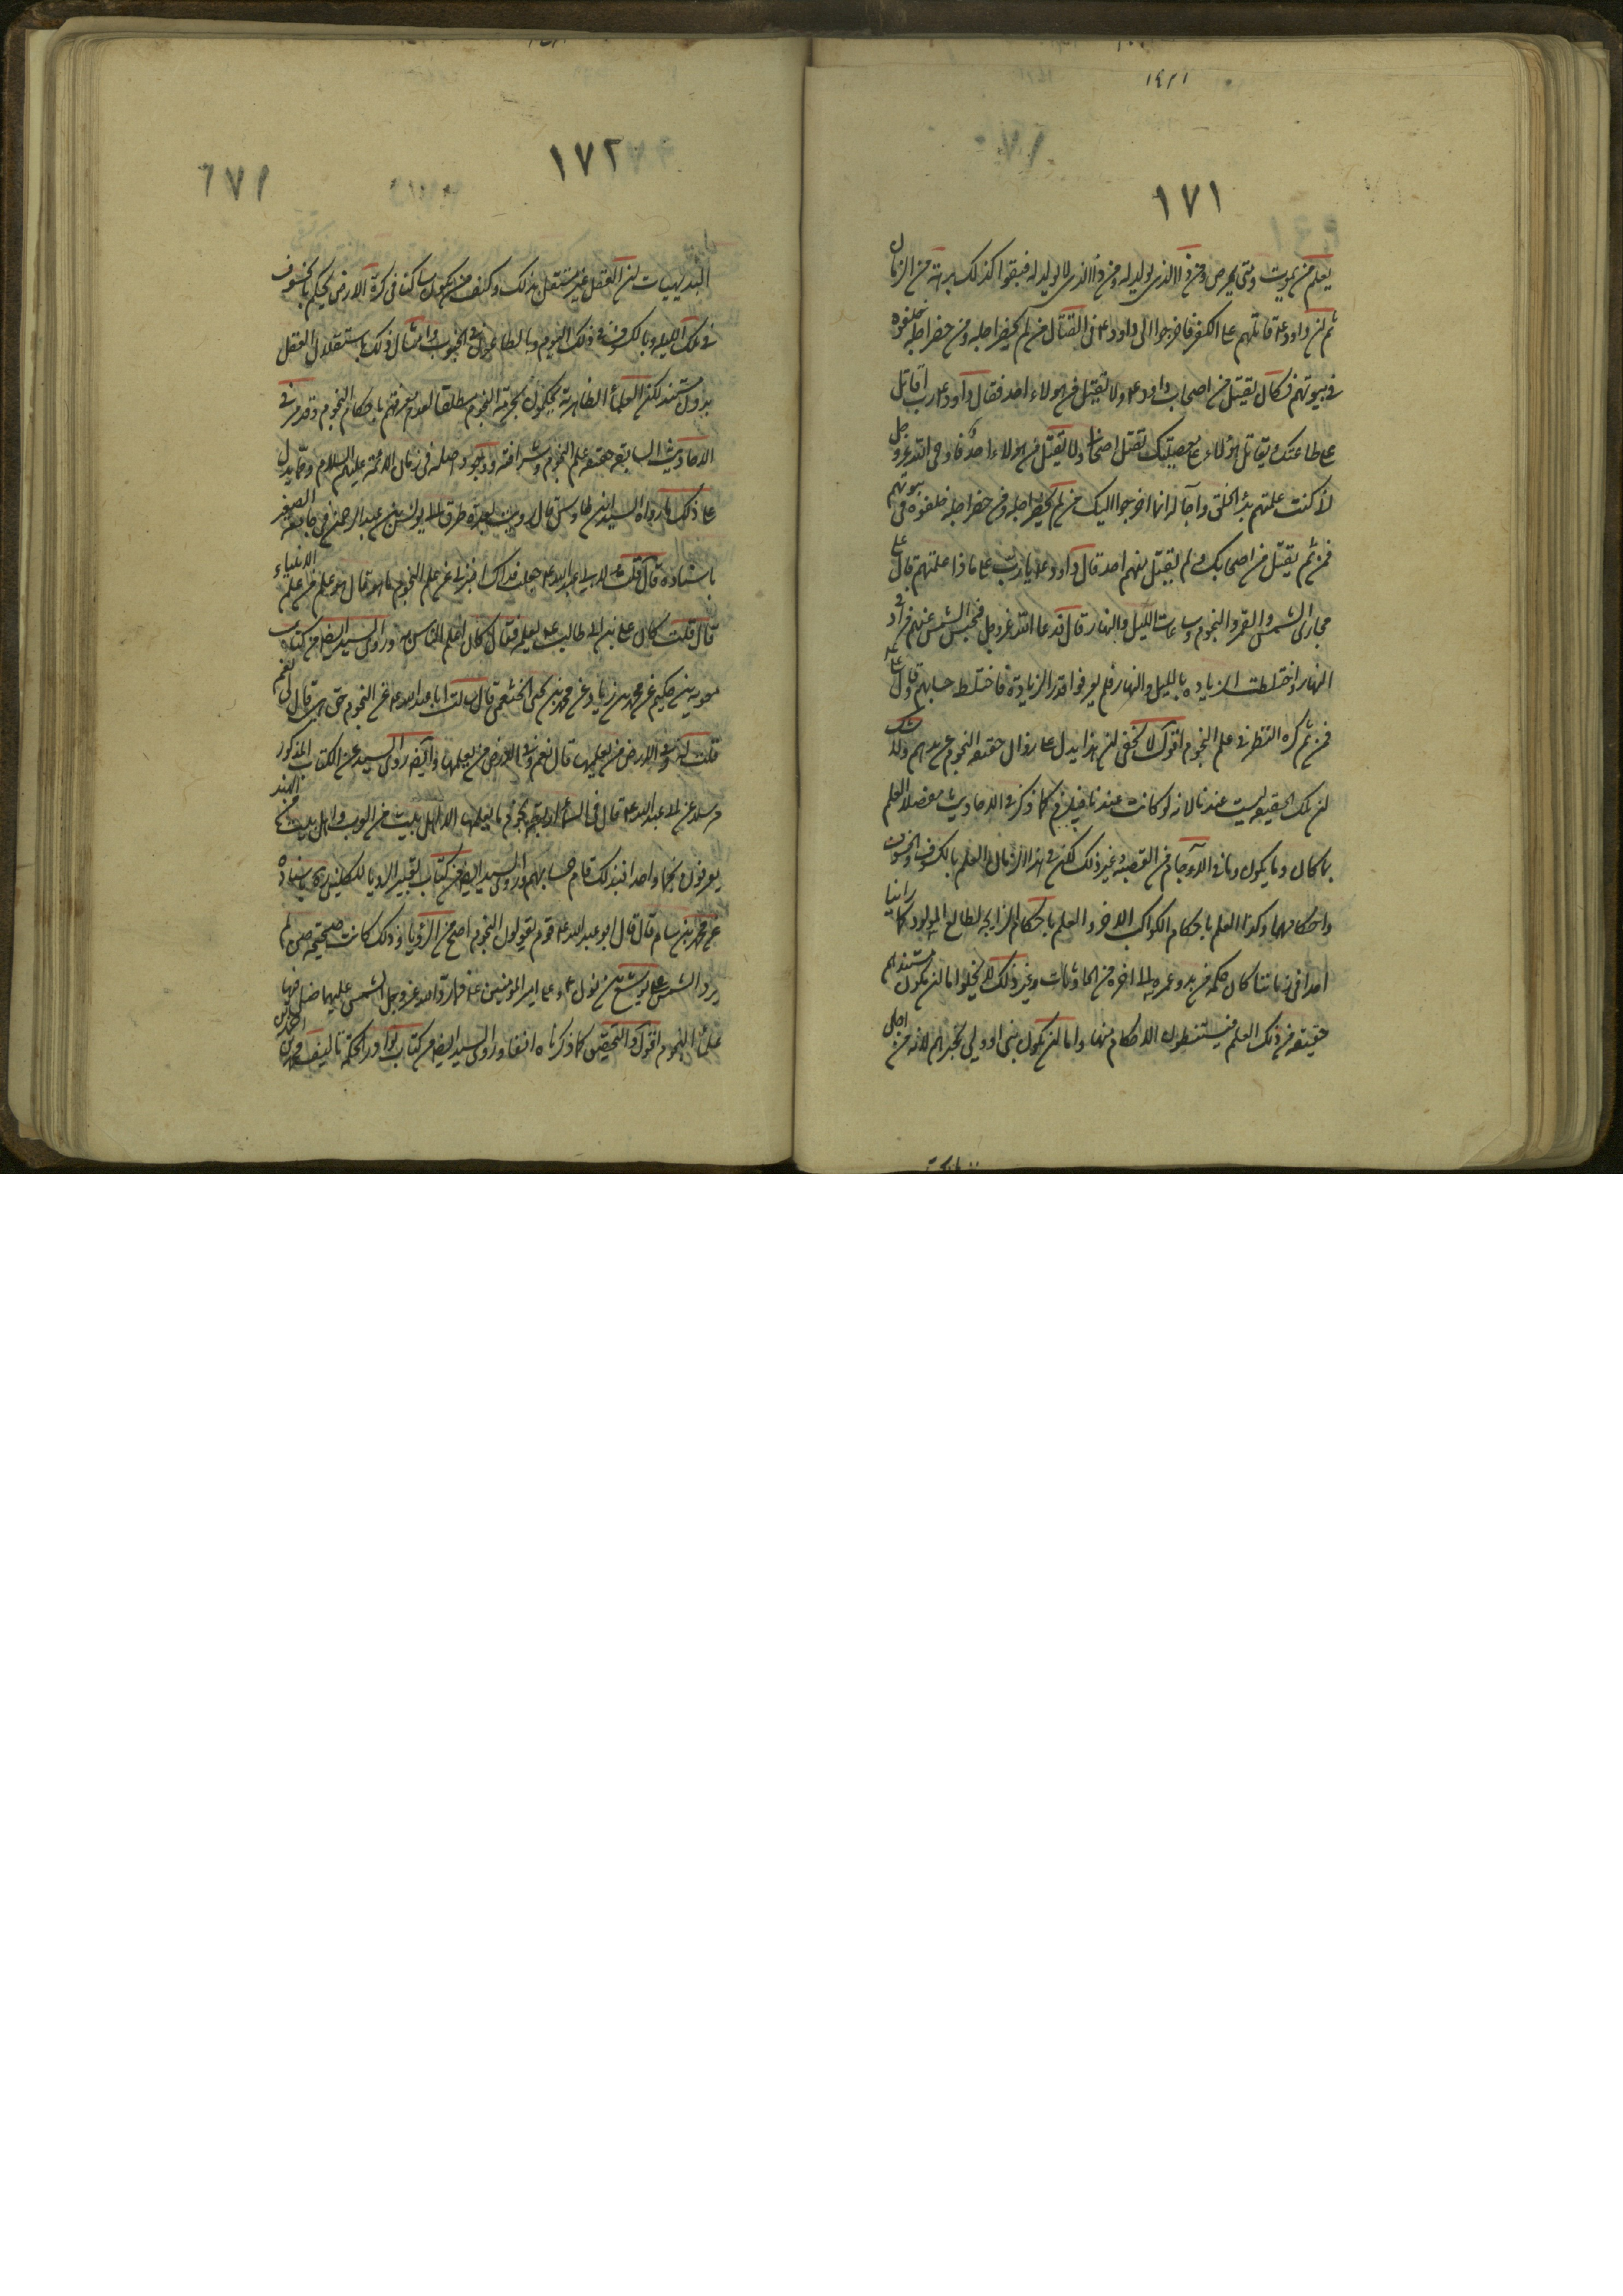 ١٧١
يعلم من يموت ومتى يمرض ومن ذا الذى يولد له ومن ذا الذى لا يولد له فبقوا كذلك برهة من الزمان
ثم ان داود ع قاتلهم على الكفر فاخرجوا الى داود ع فى القتال من لم يحضر اجله ومن حضر اجله خلفوه
فى بيوتهم فكان يقتل من اصحاب داود ع ولا يقتل من هولاء احد فقال داود ع رب اقاتل
على طاعتك ويقاتل هولاء على معصيتك يقتل اصحابى ولا يقتل من هولاء احد فاوحى الله عز وجل
انى كنت علمتهم بدء الخلق وآجاله انما اخرجوا اليك من لم يحضر اجله ومن حضر اجله خلفوه فى بيوتهم
فمن ثم يقتل من اصحابك ولم يقتل منهم احد قال داود ع يا رب على ماذا علمتهم قال على
مجارى الشمس والقمر والنجوم وساعات الليل والنهار قال فدعا الله عز وجل فحبس الشمس عنهم فزاد فى
النهار واختلطت الزيادة بالليل والنهار فلم يعرفوا قدر الزيادة فاختلط حسابهم وقال على ع
فمن ثم كره النظر فى علم النجوم اقول لا يخفى ان هذا يدل على زوال حقيقة النجوم عن يدهم
ان تلك الحقيقة ليست عندنا لانه لو كانت عندنا فيلزم كما ذكر فى الاحاديث مفصلا العلم
بما كان وما يكون وما فى الآجام من القصبة وغير ذلك لكن فى هذا الزمان العلم بالكسوف والخسوف
واحكامهما وكذا العلم باحكام الكواكب الاخر والعلم باحكام الزايجة لطالع المولود كما راينا
احدا فى زماننا كان حكمه من بدو عمره الى اخره من الحادثات وغير ذلك لا يخلوا اما ان يكون مستندهم
حقيقة من ذلك العلم فيستنبطون الاحكام منها واما ان يكون بنى او ولى يخبرهم لانه من اجلى
١٧٢
البديهيات ان العقل غير مستقل بذلك وكيف من يكون ساكنا فى كرة الارض يحكم بالخسوف
فى تلك الليلة وبالكسوف فى ذلك اليوم وبالطاعون فى الجنوب وامثال ذلك باستقلال العقل
بدون مستند لكن العلماء الظاهرية يحكمون بحرمة النجوم مطلقا لعدم معرفتهم باحكام النجوم وقد مر فى
الاحاديث السابقة حقيقة علم النجوم وشرافته ووجود اصله فى زمان الائمة عليهم السلام ومما يدل
على ذلك ما رواه السيد ابن طاوس قال رويت بعدة طرق الى يونس بن عبد الرحمن فى جامعه الصغير
باسناده قال قلت لابى عبد الله ع جعلت فداك اخبرنى عن علم النجوم ما هو قال هو علم من علم الانبياء
قال قلت كان على بن ابى طالب ع يعلمه فقال كان اعلم الناس به وروى السيد ايضا من كتاب
معوية بن حكيم عن محمد بن زياد عن محمد بن يحيى الخثعمى قال سالت ابا عبد الله ع عن النجوم حق هى قال لى نعم
قلت له وفى الارض من يعلمها قال نعم وفى الارض من يعلمها وايضا روى السيد عن الكتاب المذكور
مرسلا عن ابى عبد الله ع قال فى السماء اربعة نجوم ما يعلمها الا اهل بيت من العرب واهل بيت من الهند
يعرفون منها نجما واحدا فبذلك قام حسابهم وروى السيد ايضا من كتاب تعبير الرويا للكلينى باسناده
عن محمد بن سام قال قال ابو عبد الله ع قوم يقولون النجوم اصح من الرويا وذلك كانت صحيحة حين لم
يرد الشمس على يوشع بن نون ع وعلى امير المؤمنين ع فلما رد الله عز وجل الشمس عليهما ضل فيها
علماء النجوم اقول والتحقيق كما ذكرناه انفا وروى السيد ايضا من كتاب نوادر الحكمة تاليف محمد بن احمد